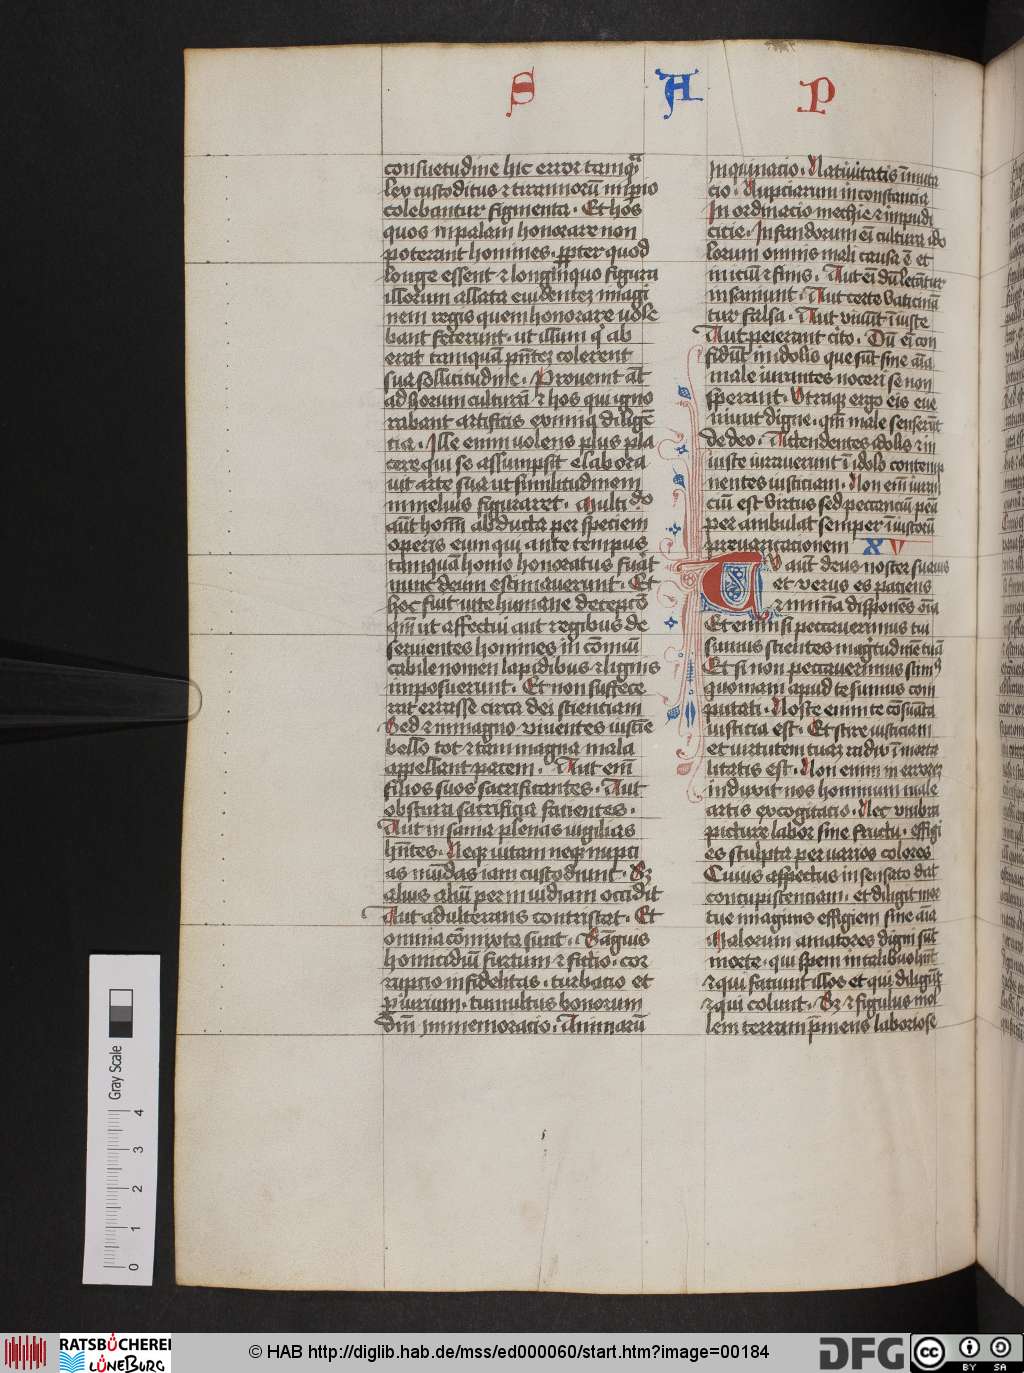 S A P
consuetudine hic error tamqᷓ
lex custoditus ⁊ tirannorū inꝑio
colebantur figmenta · Et hos
quos in palam honorare non
poterant homines · ꝓpter quod
longe essent ⁊ longinquo figura
illorum allata euidentez imagi
nem regis quem honorare uole
bant fecerunt · ut illum qͥ ab
erat tamquā pn̄tez colerent
sua sollicitudine · Prouenit āt
ad horum culturā ⁊ hos qui igno
rabant artificis eximiq̄ diligē
tia · Ille enim uolens plus pla
cere qui se assumpsit elabora
uit arte sua ut similitudinem
in melius figuraret · Multido
aūt homī abducta per speciem
operis eum qui ante tempus
tamquā homo honoratus fuāt
nunc deum estimauerunt · Et
hoc fuit uite humane deceptō
qm̄ ut affectui aut regibus de
seruientes homines in cōmuī
cabile nomen lapidibus ⁊ lignis
imposuerunt · Et non suffece
rat errasse circa dei scientiam
Sed ⁊ in magno uiuentes insciē
bello tot ⁊ tam magna mala
appellant pacem · Aut em̄
filios suos sacrificantes · Aut
obscura sacrificia facientes ·
Aut insania plenas uigilias
hn̄tes · Neqꝫ uitam neqꝫ nupti
as mūdas iam custodiunt · Sꝫ
alius aliū per inuidiam occidit
Aut adulterans contristat · Et
omnia cōmixta sunt · Sāguis
homicidiū furtum ⁊ fictio · cor
rupcio infidelitas · turbacio et
ꝑiurium · tumultus bonorum
Dm̄ immemoracio · Animarū
Inquinacio · Natiuitatis ī muta
cio · Nupciarum inconstancia
In ordinacio mechie ⁊ impudi
citie · Infandorum em̄ cultura ido
lorum omnis mali causa ē et
inicium ⁊ finis · Aut em̄ dū letātur
insaniunt · Aut certe vaticinā
tur falsa · Aut viuūt īiuste
Aut peierant cito · Dū em̄ con
fidūt in idolis que sūt sine aīa
male iurantes noceri se non
sperant · Utraqꝫ ergo eis eue
niunt digne · qm̄ male senserūt
de deo · Attendentes idolis ⁊ in
iuste iurauerunt ī idolo contemp
nentes iusticiam · Non em̄ iuran
ciū est virtus sed peccanciū pena
per ambulat semper īiustorū
preuaricacionem XV
Tu aūt deus noster suauis
et verus es paciens
⁊ in mīa disponēs oīa
Et enim si peccauerimus tui
sumus scientes magtudinē tuā
Et si non peccauerimus scimꝰ
quoniam apud te sumus com
putati · Nosse enim te cōsūata
iusticia est · Et scire iusticiam
et uirtutem tuaz radix īmorta
litatis est · Non enim in errorez
induxit nos hominum male
artis excogitacio · Nec vmbra
picture labor sine fructu · effigi
es sculpta per uarios colores
Cuius aspectus insensato dat
concupiscenciam · et diligit mor
tue imaginis effigiem sine aīa
Malorum amatores digni sūt
morte · qui spem in talibus hn̄t
⁊ qui faciunt illos et qui diligūt
⁊ qui colunt · Sꝫ ⁊ figulus mol
lem terram p̄mens laboriose
Gray Scale
0 1 2 3 4
RATSBÜCHEREI
LÜNEBURG
© HAB http://diglib.hab.de/mss/ed000060/start.htm?image=00184
DFG
cc BY SA